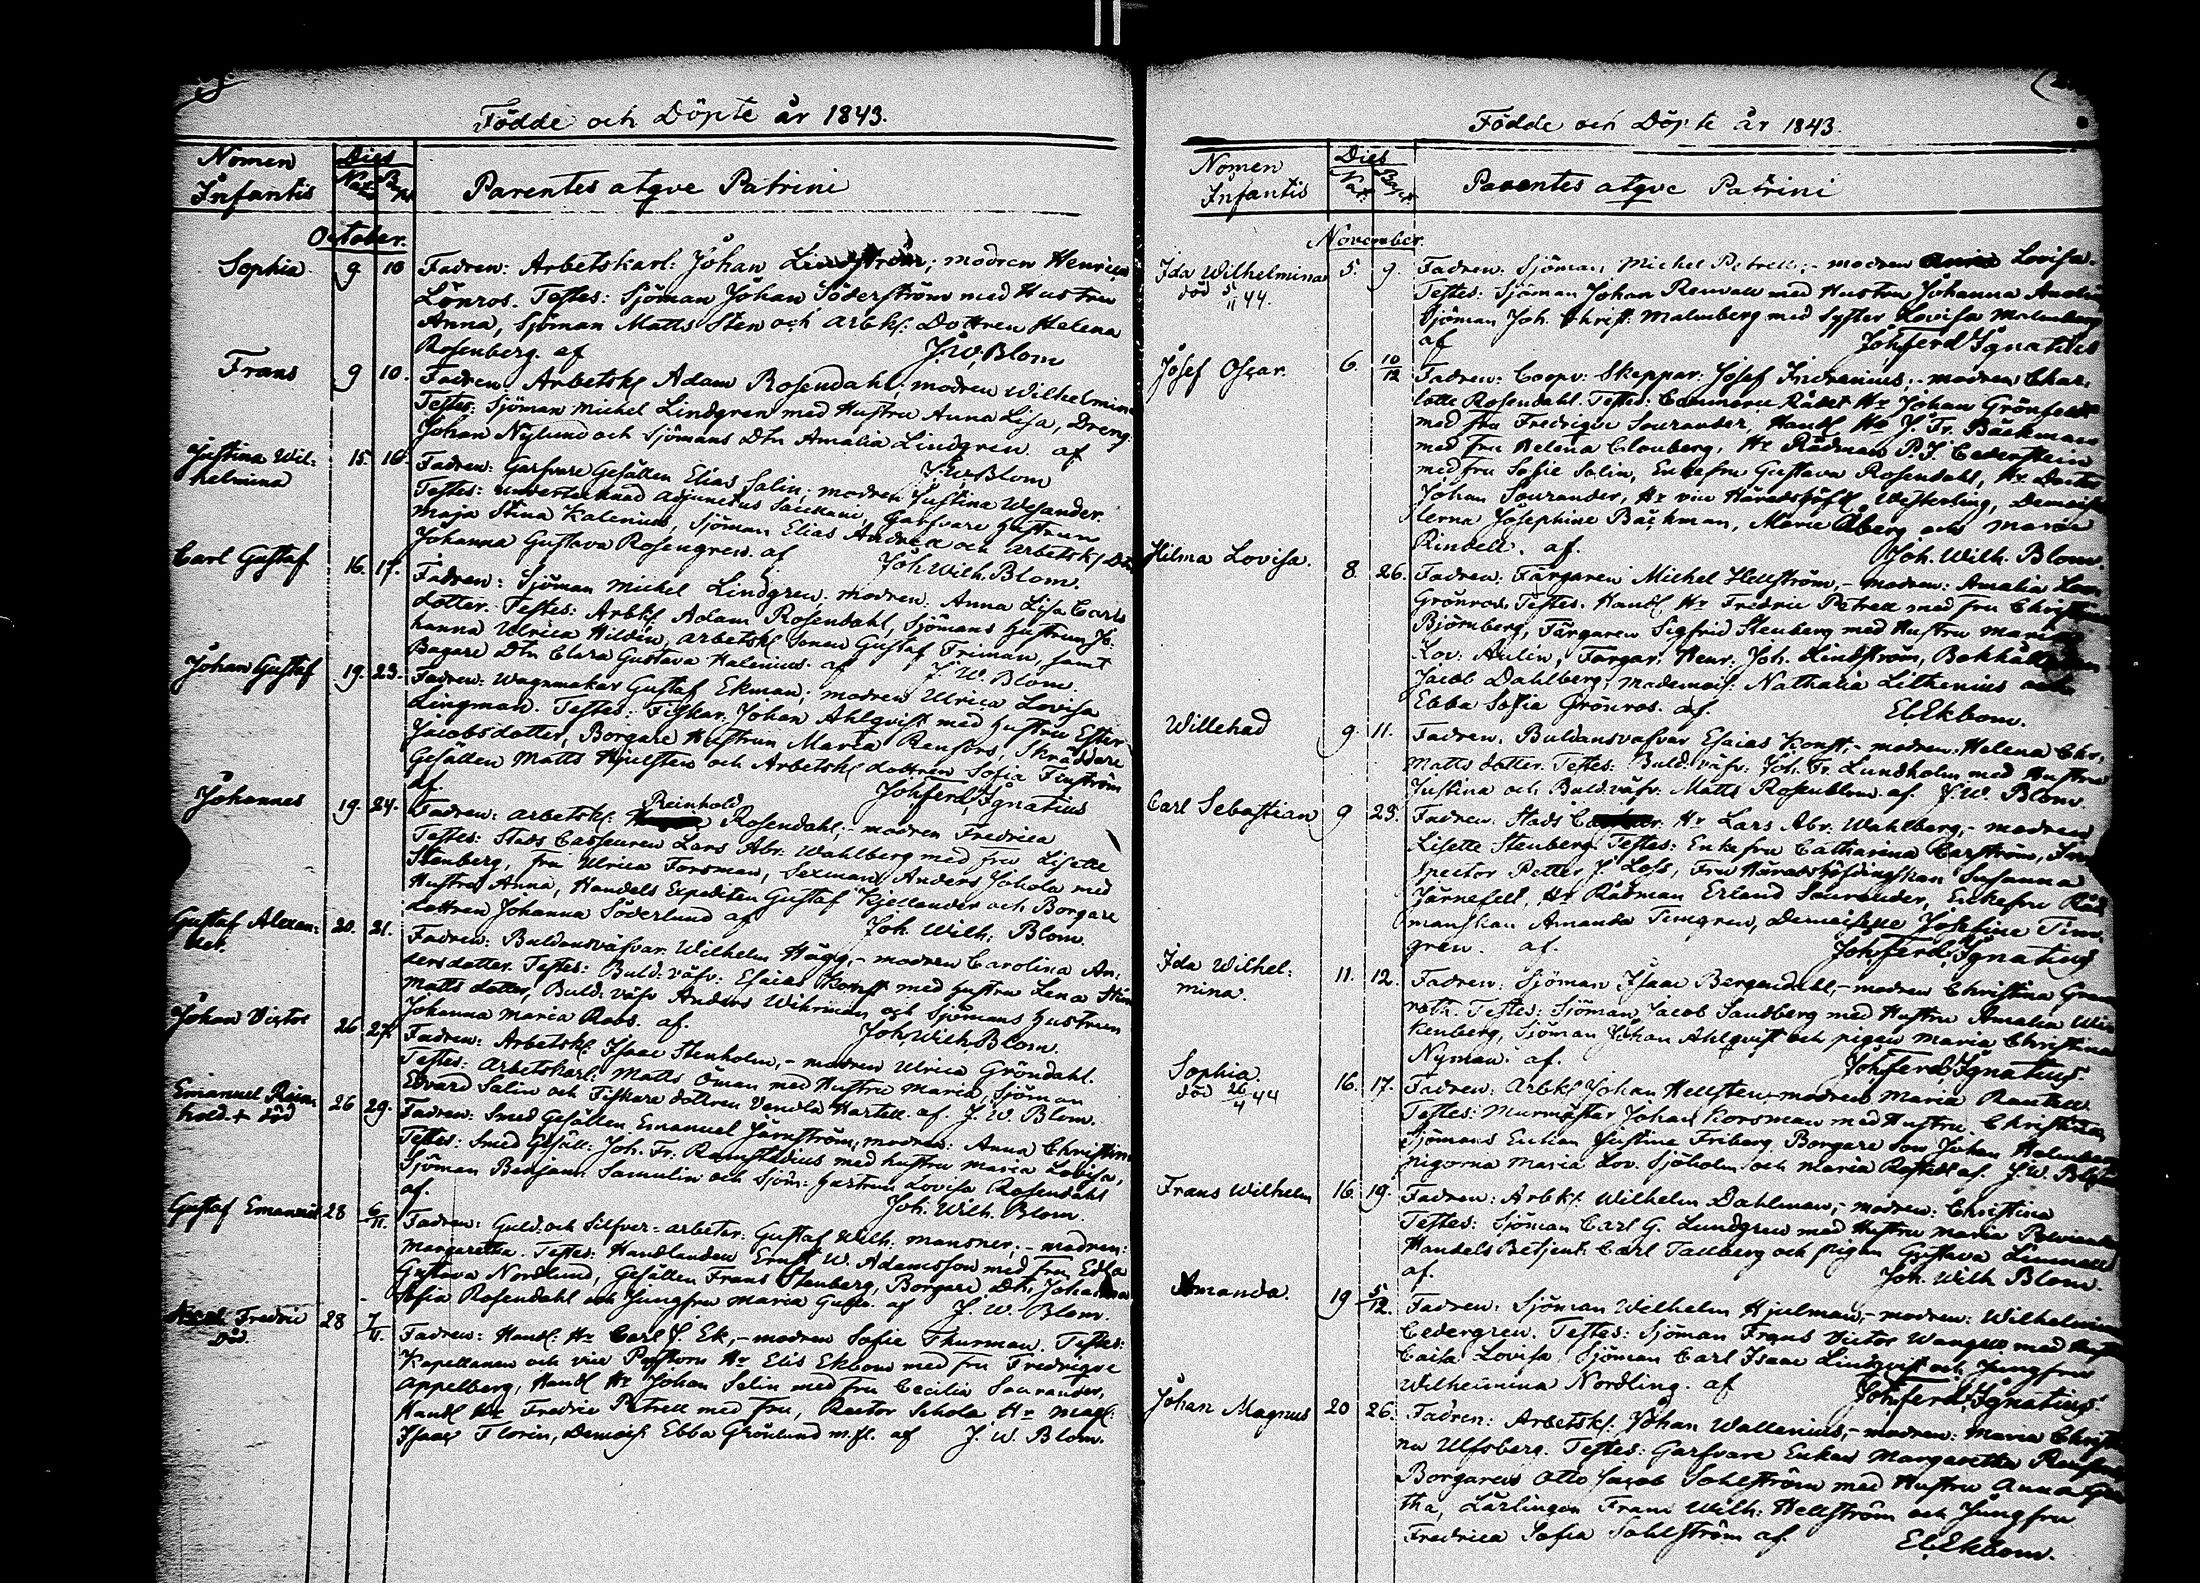 Födde och Döpte år 1843.
Nomen Infantis
Dies
Nat. Bapt.
Parentes atqve Patrini
October.
Sophia. 9 10 Fadren: Arbetskarl: Johan Lindström; modren Henrica
Lönros. Testes: Sjöman Johan Söderström med Hustru
Anna, Sjöman Matts Sten och Arbkl: Dottren Helena
Rosenberg. af J.W. Blom
Frans 9 10. Fadren: Arbetskl Adam Rosendahl; modren Wilhelmina
Testes: Sjöman Michel Lindgren med Hustru Anna Lisa, Dreng
Johan Nylund och Sjömans Dtn Amalia Lindgren af
J.W. Blom
Justina Wil-
helmina 15. 16. Fadren: Garfvare Gesällen Elias Salin; modren Justina Wesander.
Testes: undertecknad Adjunctus Garfvare Hustrun
Maja Stina Kalenius, Sjöman Elias Andrea och Arbetskl Dtn
Johanna Gustava Rosengren. af Joh. Wilh. Blom.
Carl Gustaf 16. 17. Fadren: Sjöman Michel Lindgren. modren: Anna Lisa Carls
dotter. Testes: Arbkl Adam Rosendahl, Sjömans Hustrun Jo-
hanna Ulrica Hildén, Arbetskl Sonen Gustaf Friman, samt
Bagare Dtn Clara Gustava Halenius. af J.W. Blom.
Johan Gustaf 19. 23. Fadren: Wagnmakar Gustaf Ekman; modren Ulrica Lovisa
Lingman. Testes: Fiskar: Johan Ahlqvist med Hustru Ester
Jacobsdotter, Borgare Hustrun Maria Renfors, Skräddare
Gesällen Matts Hjulsten och Arbetskl dottren Sofia Finström
af. Joh. Ferd. Ignatius
Johannes 19. 24. Fadren: Arbetskl: Reinhold Rosendahl, - modren Fredrica
Testes: Stads Casseuren Lars Abr. Wahlberg med fru Lisette
Stenberg, fru Ulrica Forsman, Sexman Anders Johola med
Hustru Anna, Handels Expediten Gustaf Kjellander och Borgare
dottren Johanna Söderlund af Joh. Wilh. Blom.
Gustaf Alexan-
der. 20. 21. Fadren: Buldansväfvar. Wilhelm Hägg, - modren Carolina An-
dersdotter. Testes: Buld: väfv: Esaias Konst med Hustru Lena Stina
Mattsdotter, Buld: väfv Anders Wihrman och Sjömans Hustrun
Johanna Maria Roos. af. Joh. Wilh. Blom.
Johan Victor 26 27. Fadren: Arbetskl. Isaac Stenholm, - modren Ulrica Gröndahl.
Testes: Arbetskarl. Matts Öman med Hustru Maria, Sjöman
Edvard Salin och Fiskare dottren Vendla Hartell. af J.W. Blom.
Emanuel Rein-
hold. + död 26 29. Fadren: Smed Gesällen Emanuel Järnström; modren: Anna Christina
Testes: Smed Gesäll: Joh. Fr. Ramstadius med hustru Maria Lovisa,
Sjöman Benjam. Samulin och Sjöm: Hustrun Lovisa Rosendahl
af. Joh. Wilh. Blom.
Gustaf Emanuel 28 6/11. Fadren: Guld och Silfver-arbetar: Gustaf Wilh: Mansner, - modren:
Margaretha. Testes: Handlanden Ernst W. Adamsson med fru Edla
Gustava Nordlund, Gesällen Frans Stenberg, Borgare Dtr. Johanna
Sofia Rosendahl och Jungfru Maria af J.W. Blom.
Fredric
död. 28 7/11. Fadren: Handl: Hr Carl J. Ek, - modren Sofie Thurman. Testes:
Kapellanen och vice Pastorn Hr Elis Ekbom med fru Fredriqve
Appelberg, Handl Hr Johan Selin med fru Cecilia Sourander,
Handl Hr Fredric Petrell med fru, Rector Schola Hr Mag:
Isaac Florin, Demois: Ebba Grönlund m.fl. af J.W. Blom.
Födde och Döpte år 1843.
Nomen Infantis
Dies
Nat. Bapt.
Parentes atqve Patrini
November.
Ida Wilhelmina
död 5/11 44. 5. 9. Fadren: Sjöman, Michel Petrell; - modren Lovisa.
Testes: Sjöman Johan Renvall med Hustru Johanna
Sjöman Joh. Christ: Malmberg med Syster Lovisa Malmberg
af Joh. Ferd Ignatius
Josef Oscar. 6. 10/12 Fadren: Coopv: Skeppar: Josef Indrenius; - modren Char-
lotte Rosendahl. Testes: Commerce Rådet Hr Johan Grönfeldt
med fru Fredriqve Sourander, Handl. Hr J. Fr. Bäckman
med fru Helena Clouberg, Hr Rådman P.J. Cederstein
med fru Sofie Salin, Enkefru Gustava Rosendahl, Hr Doctor
Johan Sourander, Hr vice Häradshöfd. Westerling, Demoisel-
lerna Josephine Bäckman, Marie Åberg och Marie
Rindell. af. Joh. Wilh. Blom.
Hilma Lovisa. 8 26. Fadren: Färgaren Michel Hellström, - modren: Amalia Lov:
Grönros. Testes. Handl. Hr Fredric Petrell med fru Christina
Björnberg, Färgaren Sigfrid Stenberg med Hustru Maria
Lov: Aulin, Färgar: Henr: Joh. Lindström, Bokhållaren
Jacob Dahlberg, Mademois: Nathalia Lithenius och
Ebba Sofia Grönros. af. El. Ekbom.
Willehad 9 11. Fadren. Buldansväfvar Esaias Konst, - modren: Helena Chr.
Matts dotter. Testes: Buld: väfv: Joh. Fr. Lundholm med Hustru
Justina och Buld. väfv: Matts Rosenblom. af. J.W. Blom.
Carl Sebastian 9 25. Fadren: Stads Hr Lars Abr. Wahlberg, - modren
Lisette Stenberg. Testes: Enkefru Catharina Carström, In-
spector Petter J. Lofs, Fru Häradshöfdingskan Susanna
Järnefelt, Hr Rådman Erland Sourander, Enkefru Råd
manskan Amanda Timgren, Demoiselle Josefine Tim-
gren. af. Joh. Ferd. Ignatius
Ida Wilhel-
mina. 11. 12. Fadren: Sjöman Isaac Bergendahl, - modren Christina Gran
roth. Testes: Sjöman Jacob Sandberg med Hustru Amalia Win
kenberg, Sjöman Johan Ahlqvist och pigan Maria Christina
Nyman. af. Joh. Ferd. Ignatius.
Sophia.
död 26/4 44 16. 17. Fadren: Arbkl Johan Hellsten, modren Maria Rantell
Testes: Murmästar Johan Korsman med Hustru Christina,
Sjömans Enkan Justina Friberg, Borgare Son Johan Holmberg
pigorna Maria Lov. Sjöholm och Maria af. J.W. Blom
Frans Wilhelm 16. 19. Fadren: Arbkl. Wilhelm Dahlman, - modren: Christina
Testes: Sjöman Carl G. Lundgren med Hustru Maria
Handels Betjent: Carl Tallberg och pigan Gustava
af. Joh. Wilh Blom.
Amanda. 19 5/12. Fadren: Sjöman Wilhelm Hjulman, - modren: Wilhelmina
Cedergren. Testes: Sjöman Frans Victor med Hustru
Caisa Lovisa, Sjöman Carl Isaac Lindqvist och Jungfru
Wilhelmina Nordling. af Joh. Ferd. Ignatius.
Johan Magnus 20 26. Fadren: Arbetskl. Johan Wallenius, - modren: Maria Christi-
na Ulfsberg. Testes: Garfvare Enkan Margaretha
Borgaren Otto Jacob Sohlström med Hustru Anna
tha, Lärlingen Frans Wilh: Hellström och Jungfru
Fredrica Sofia Sohlström af. El. Ekbom.